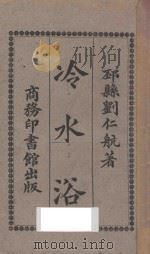 邳縣劉仁航著
冷水浴
商務印書館出版
www.toutu100.com